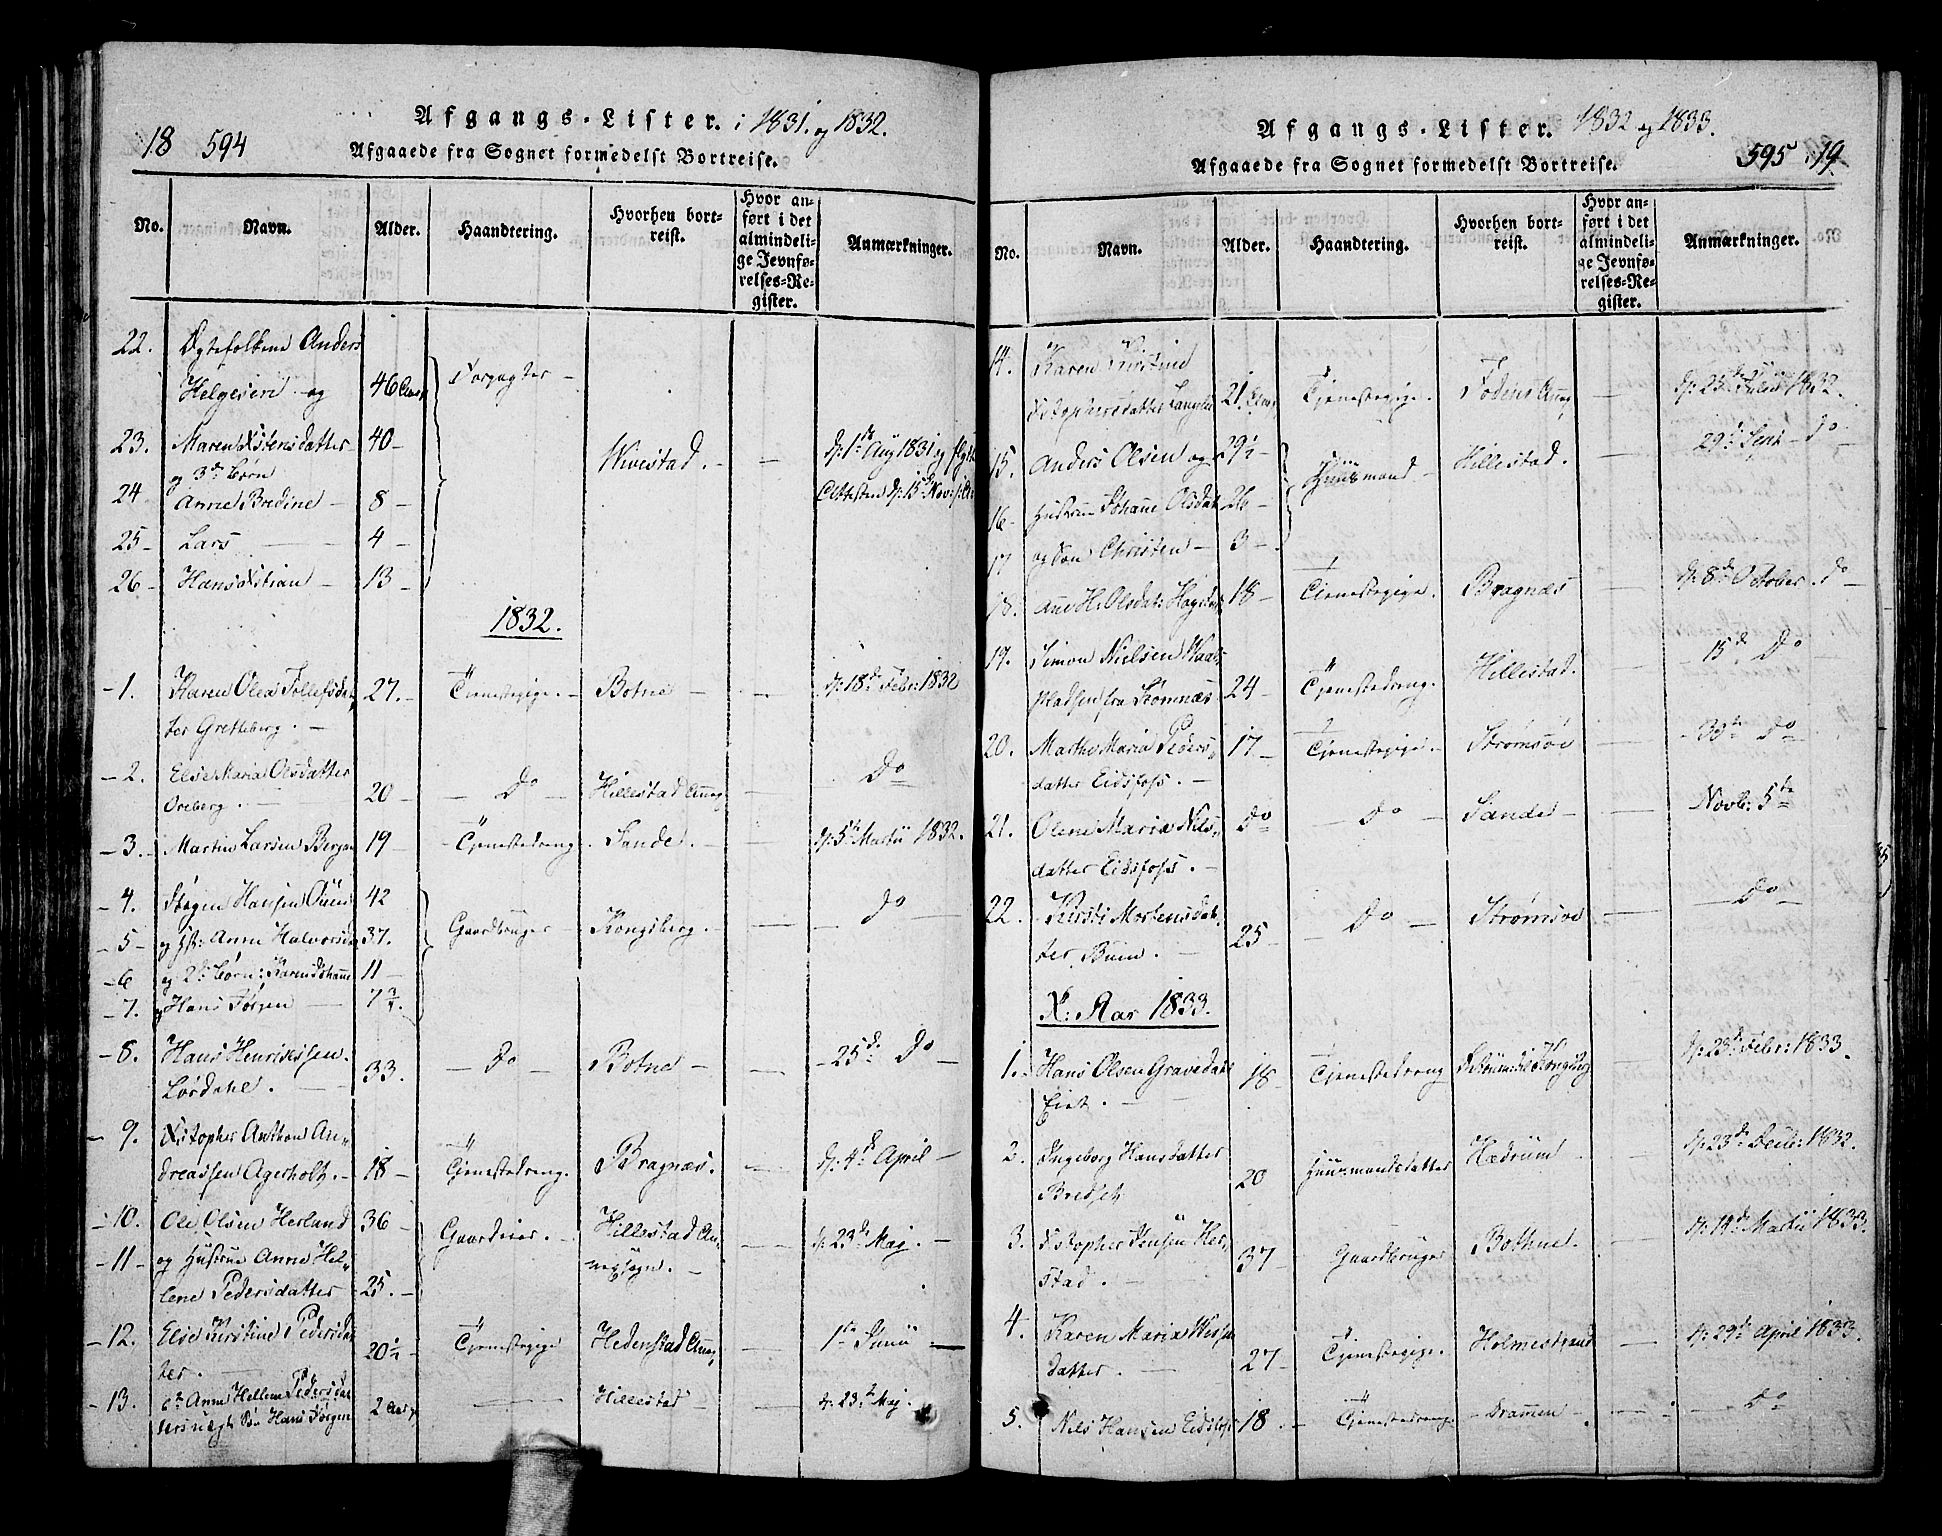 Afgangs-Lister. i 1831. og 1832.
18 594
Afgaaede fra Sognet formedelst Bortreise.
No. Navn. Alder. Haandtering. Hvorhen bortreist. Hvor anført i det almindelige Jevnførelses-Register. Anmærkninger.
22. Ægtefolkene Anders
Helgesen og 46 Forpagter
23. Maren 40 Wivestad. d: 1ste Aug 1831
og 3de børn
24 Anne Bredine 8
25 Lars 4
26 Hans Xstian 13
1832.
1. Karen Olea Tollefsdat
ter Gretteberg. 27. Tjenestepige. Botne d: 18de Febr: 1832
2. Else Maria Olsdatter
Oreberg. 20 Do Hillestad Do
3. Martin Larsen Bergan 19 Tjenestedreng Sande. d: 5te Martii 1832.
4. Jørgen Hansen 42
5 Anne Halvorsda 37. Gaardbruger Kongsberg. Do
6 og 2de børn: Karen Johanne 11
7. og Hans Jørgen 7 3/4.
8. Hans Henrichsen
Lørdahl. 33. Do Botne 25de Do
9. Xstopher Anthon An
dreassen Agerholt. 18 Tjenestedreng. Bragnæs. d: 4de April
10. Ole Olsen Herland 36 Gaardeier. Hillestad An
11 og Hustrue Anne Hel nexsogn. d: 23de Maj.
lene Pedersdatter 25.
12. Else Kirstine Pedersda
ter. 20 1/2 Tjenestepige Hedenstad 1ste Junii
13. Anne Hellene Pedersdat
ters uægte Søn Hans Jørgen 2 Hillestad d: 23de Maj.
Afgangs-Lister. 1832 og 1833.
Afgaaede fra Sognet formedelst Bortreise.
595 19
No. Navn. Alder. Haandtering. Hvorhen bortreist. Hvor anført i det almindelige Jevnførelses-Register. Anmærkninger.
14. Karen Kirstine
Xstophersdatter 21. Tjenestepige. d: 25de Julii 1832.
15. Anders Olsen og 29 1/2 Huusmand Hillestad. 29de Sept Do
16 Hustrue Johanne Olsdat 26
17 og Søn Christen 3
18. Anne H. Olsdat: 18 Tjenestepige. Bragnæs d: 8de October. Do
19. Simon Nielsen
Pladsen fra 24 Tjenestedreng. Hillestad. 15de Do
20. Marthe Maria Peders
datter Eidsfoss. 17 Tjenestepige. Strømsøe 30te Do
21. Olene Maria Nils
datter Eidsfoss. Do Do Sande Novb: 5te
22. Kirsti Mortensdat
ter Buen. 25 Do Strømsøe Do
N: Aar 1833.
1. Hans Olsen Gravedahl
Eiet. 18 Tjenestedreng d: 23de Febr: 1833.
2. Ingeborg Hansdatter
Bredseh 20 Huusmandsdatter Hedrum d: 23de 1832.
3. Xstopher Jensen Her
stad. 37 Gaardbruger Bothne. d: 14de Martii 1833
4. Karen Maria
datter. 27 Tjenestepige. Holmestrand d: 29de April 1833.
5. Nils Hansen Eidsfoss 18 Tjenestedreng Drammen Do